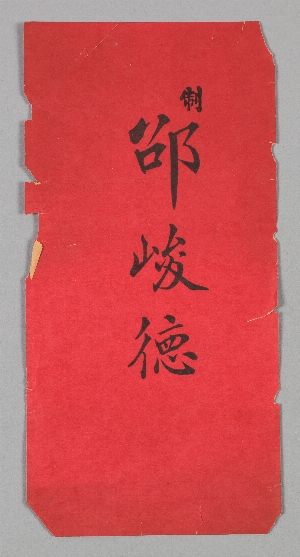 制
邵峻德